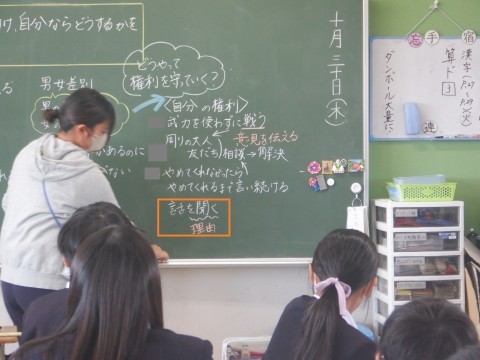 十月三十日(木)
け、自分ならどうするかを
男女差別
どうやって
権利を守っていく?
〈自分の権利〉
武力を使わずに戦う
周りの大人
友だち
相談→解決
意見を伝える
やめてくれなかったら
やめてくれるまで言い続ける
話を聞く
理由
があるのに
ない
宿
手
連
漢字
算ド
ダンボール大量に